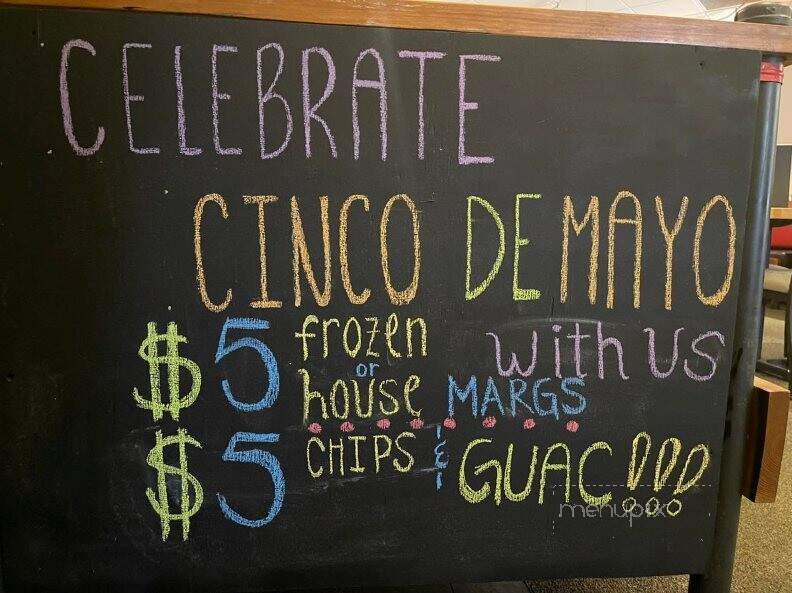 CELEBRATE
CINCO DE MAYO
with us
$5 frozen or house MARGS
$5 CHIPS & GUAC!!!
menupix